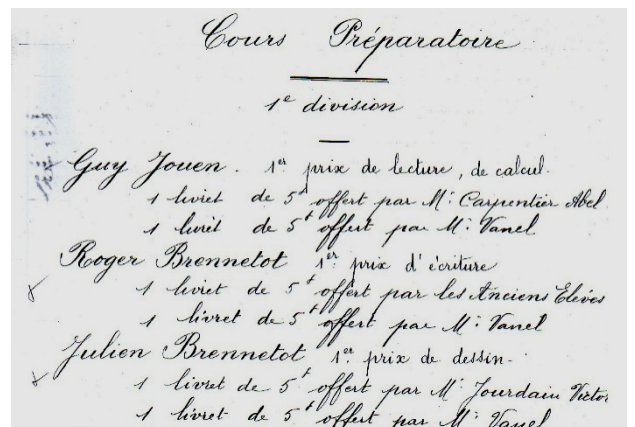 Cours Préparatoire
1e division
Guy Jouen. 1er prix de lecture, de calcul.
1 livret de 5f offert par Mr Carpentier Abel
1 livret de 5f offert par Mr Vanel
Roger Brennetot 1er prix d'écriture
1 livret de 5f offert par les Anciens Elèves
1 livret de 5f offert par Mr Vanel
Julien Brennetot 1er prix de dessin.
1 livret de 5f offert par Mr Jourdain Victor
1 livret de 5f offert par Mr Vanel